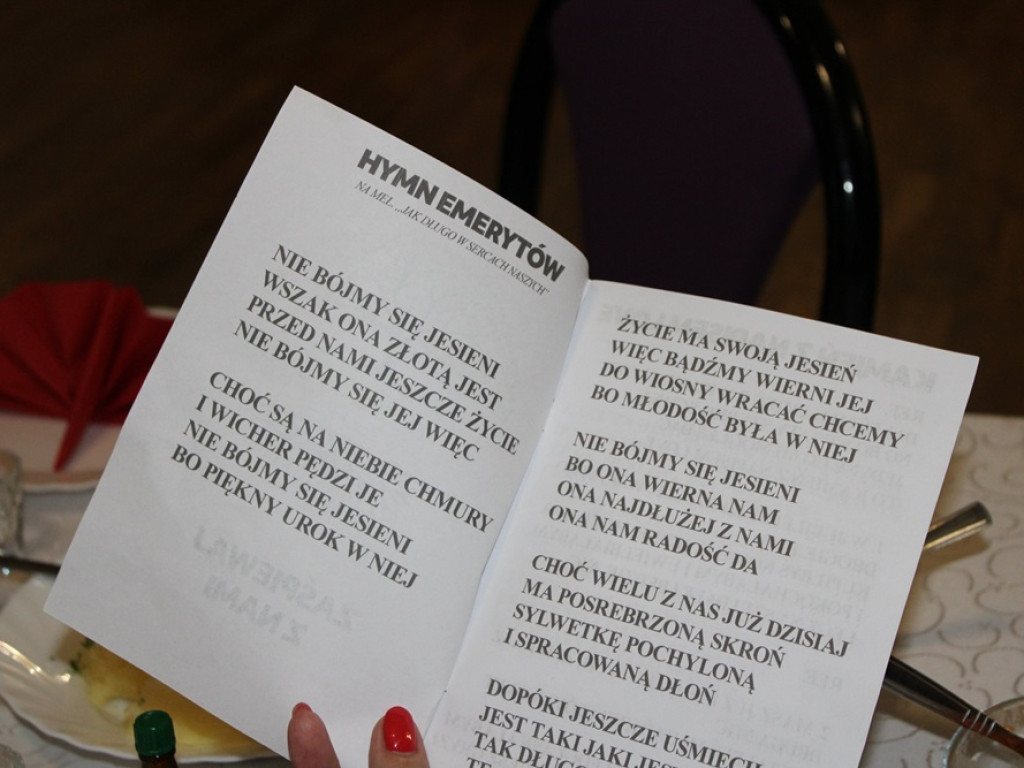 HYMN EMERYTÓW
NA MEL. ,,JAK DŁUGO W SERCACH NASZYCH"
NIE BÓJMY SIĘ JESIENI
WSZAK ONA ZŁOTĄ JEST
PRZED NAMI JESZCZE ŻYCIE
NIE BÓJMY SIĘ JEJ WIĘC
CHOĆ SĄ NA NIEBIE CHMURY
I WICHER PĘDZI JE
NIE BÓJMY SIĘ JESIENI
BO PIĘKNY UROK W NIEJ
ZAŚPIEWAJ
Z NAMI
ŻYCIE MA SWOJĄ JESIEŃ
WIĘC BĄDŹMY WIERNI JEJ
DO WIOSNY WRACAĆ CHCEMY
BO MŁODOŚĆ BYŁA W NIEJ
NIE BÓJMY SIĘ JESIENI
BO ONA WIERNA NAM
ONA NAJDŁUŻEJ Z NAMI
ONA NAM RADOŚĆ DA
CHOĆ WIELU Z NAS JUŻ DZISIAJ
MA POSREBRZONĄ SKROŃ
SYLWETKĘ POCHYLONĄ
I SPRACOWANĄ DŁOŃ
DOPÓKI JESZCZE UŚMIECH
JEST TAKI JAKI
TAK DŁUGO